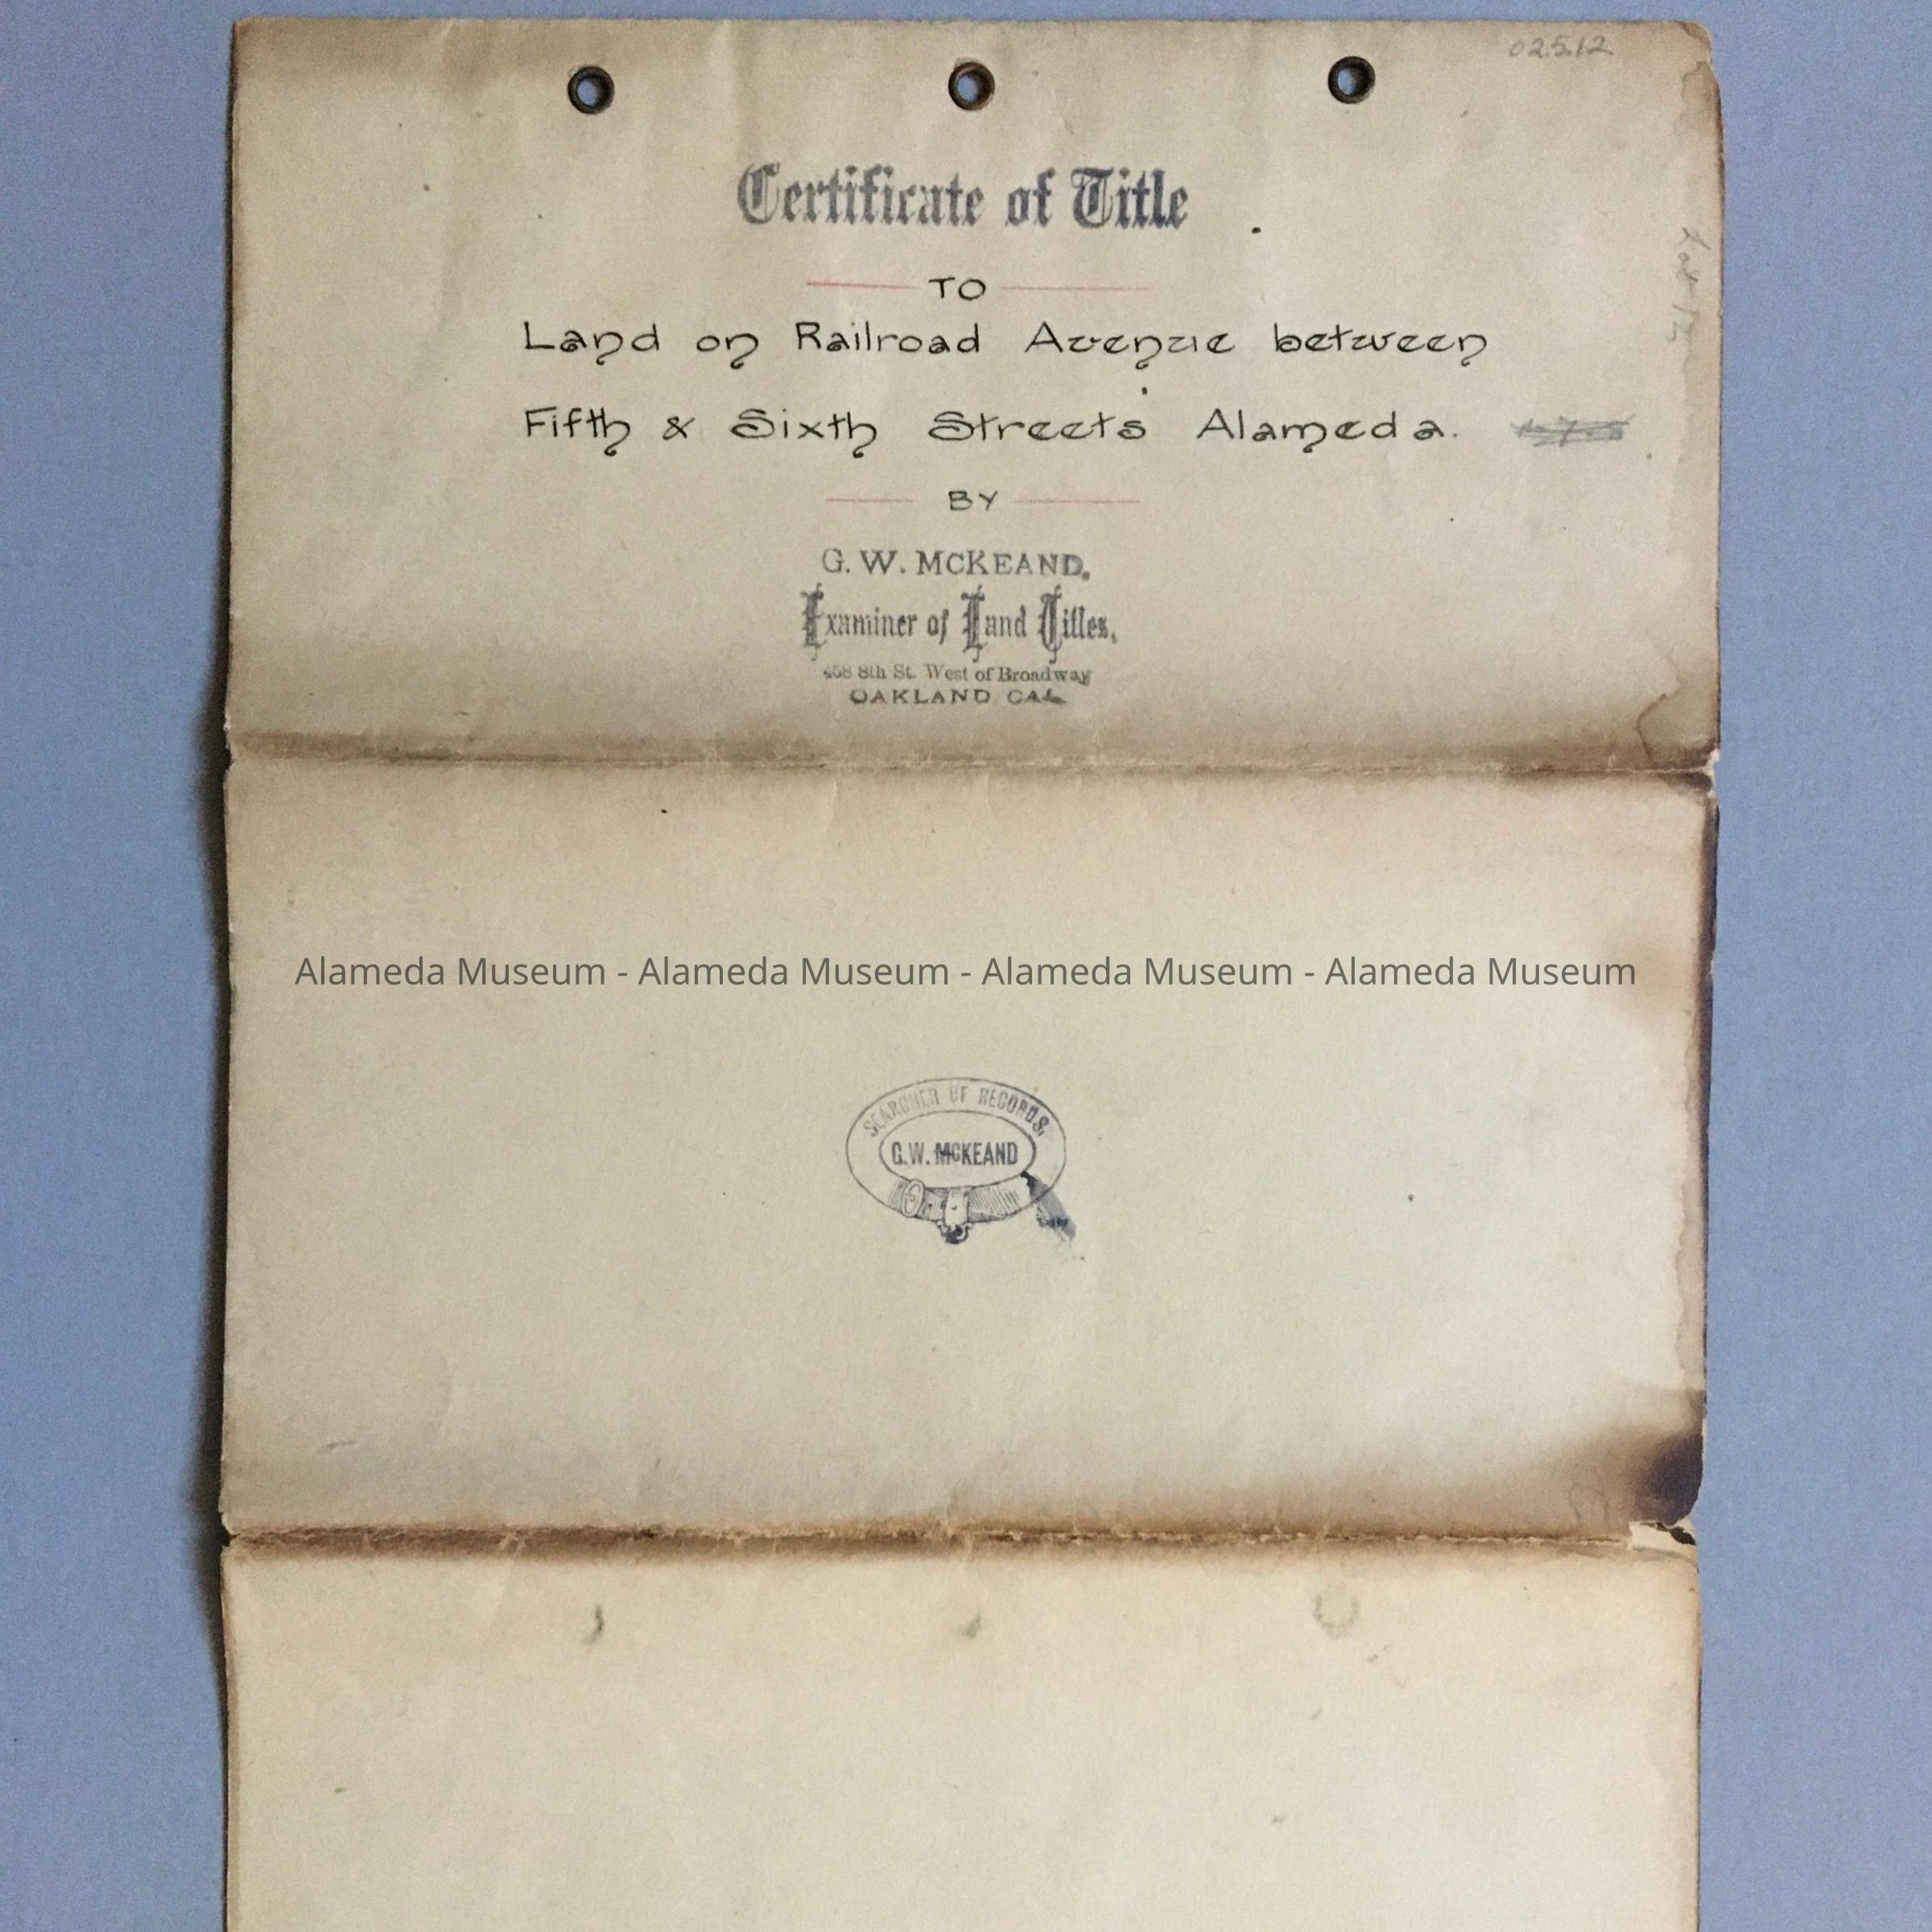 02.5.12
Certificate of Title
TO
Land on Railroad Avenue between
Fifth & Sixth Streets Alameda.
BY
G. W. MCKEAND,
Examiner of Land Titles,
458 8th St. West of Broadway
OAKLAND CAL
Alameda Museum - Alameda Museum - Alameda Museum - Alameda Museum
SEARCHER OF RECORDS,
G.W. MCKEAND